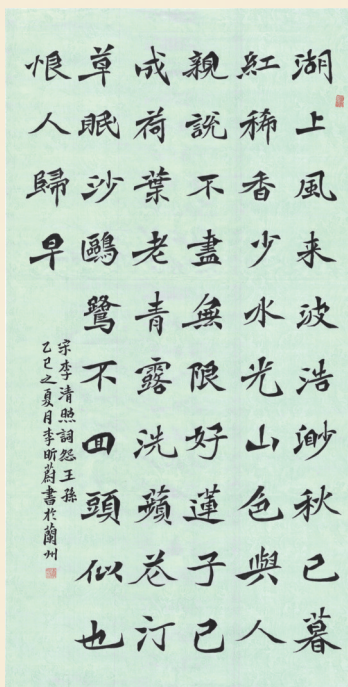 湖上風来波浩渺秋已暮
紅稀香少水光山色與人
親說不盡無限好蓮子已
成荷葉老青露洗蘋花汀
草眠沙鷗鷺不回頭似也
恨人歸早
宋李清照詞怨王孫
乙巳之夏月李昕蔚書於蘭州